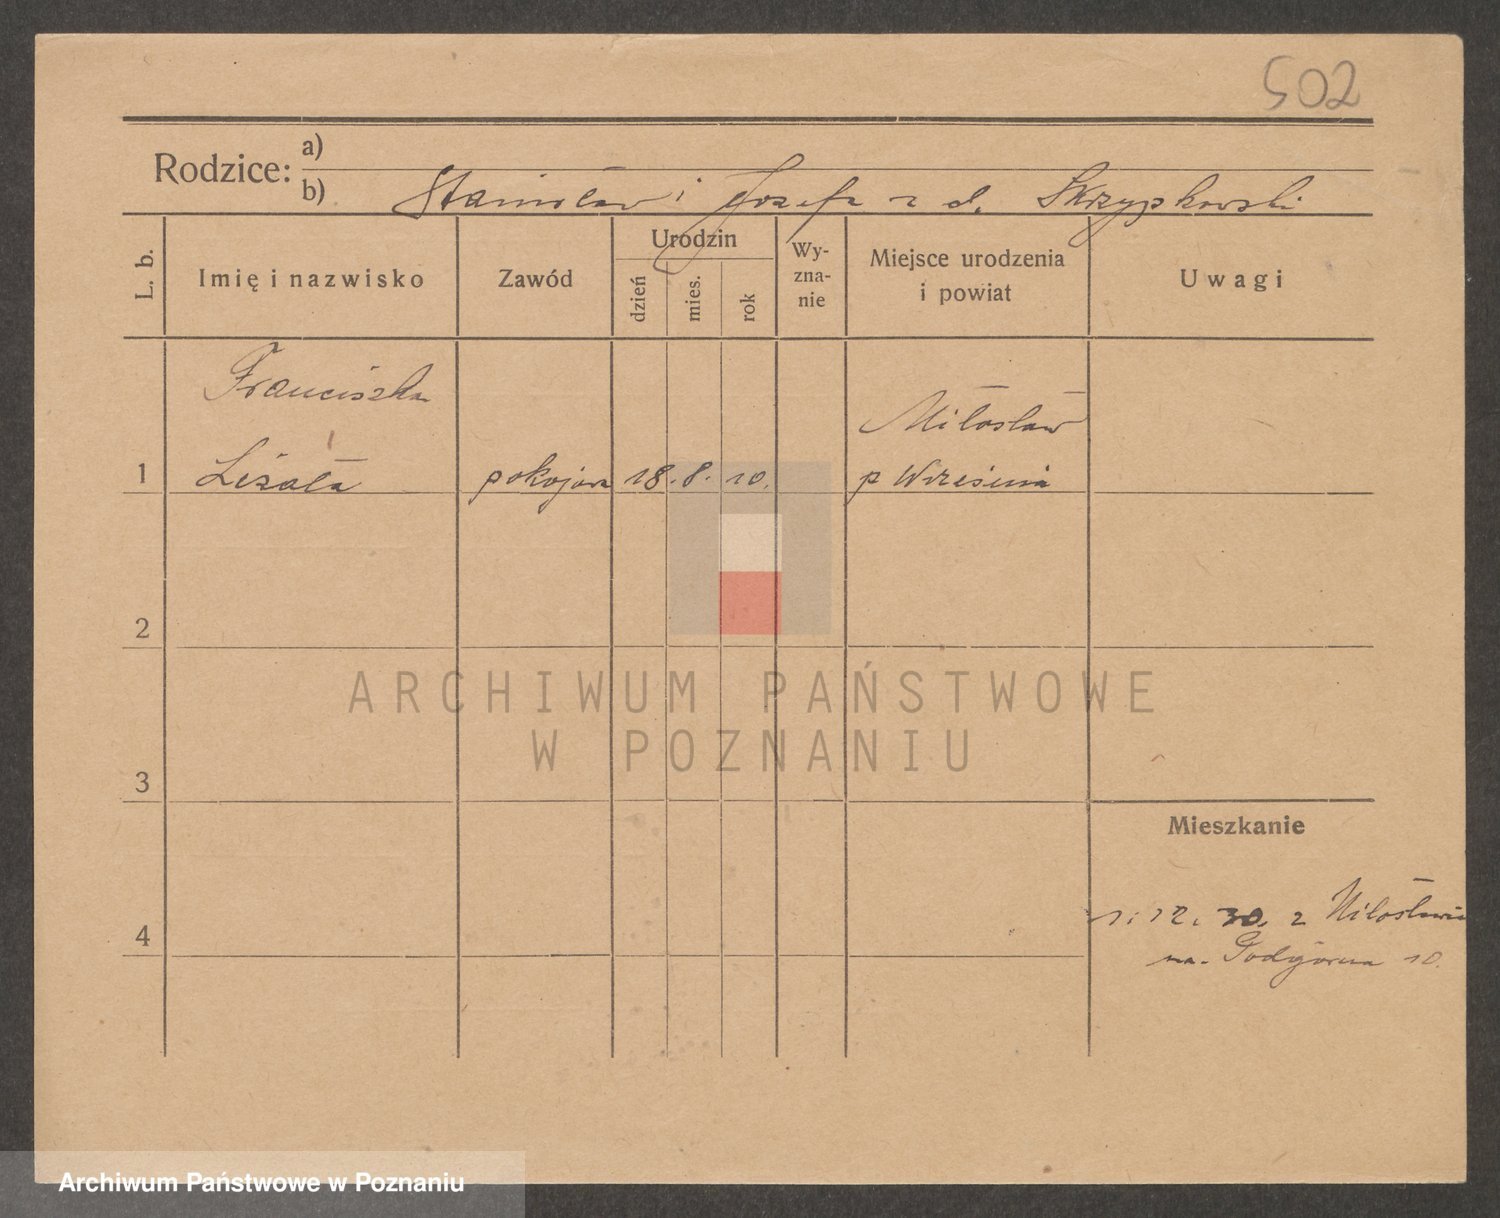 502
Rodzice:
a)
b) Stanisław i Józefa z d. Skrzypkowski
L. b.
Imię i nazwisko
Zawód
Urodzin
dzień
mies.
rok
Wy-
zna-
nie
Miejsce urodzenia
i powiat
Uwagi
Franciszka
Miłosław
1 Leżała pokojowa 18. 8. 10. p Września
2
3
4
Mieszkanie
1. 12. 30. z
na. Podgórna 10.
ARCHIWUM PAŃSTWOWE
W POZNANIU
Archiwum Państwowe w Poznaniu